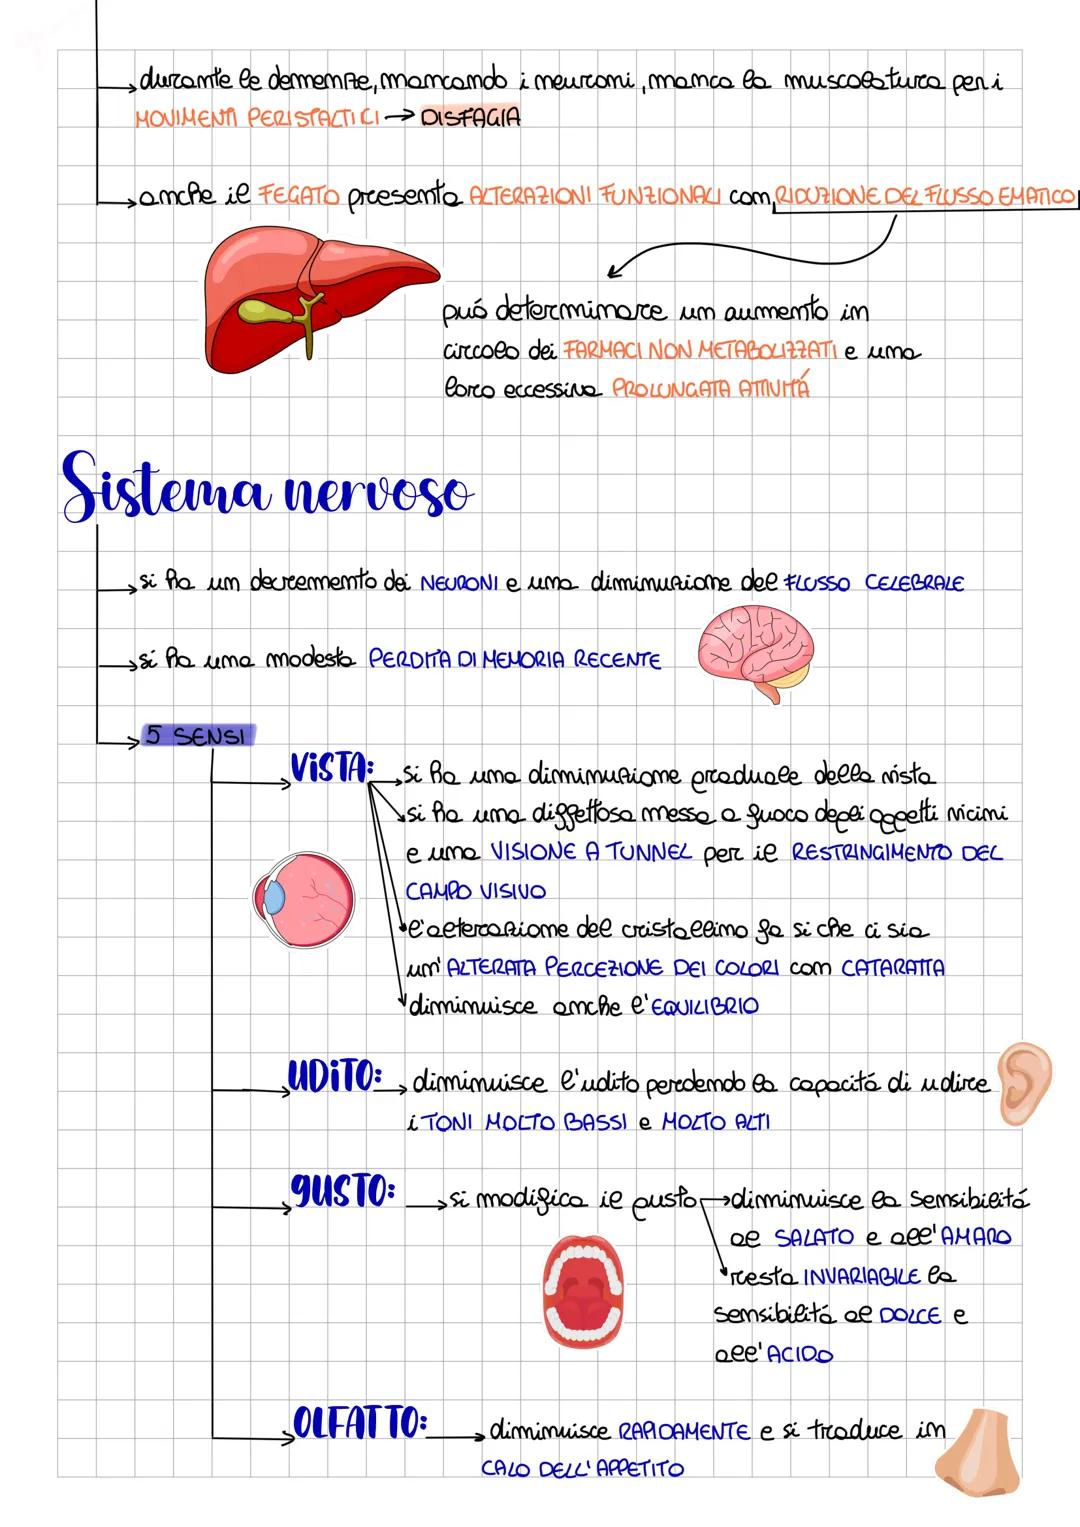 durante le demenze, mancando i neuroni, manca la muscolatura per i
MOVIMENTI PERISTALTICI → DISFAGIA
anche il FEGATO presenta ALTERAZIONI FUNZIONALI con RIDUZIONE DEL FLUSSO EMATICO
puó determinare un aumento in
circolo dei FARMACI NON METABOLIZZATI e una
loro eccessiva PROLUNGATA ATTIVITÁ
Sistema nervoso
si ha un decremento dei NEURONI e una diminuzione del FLUSSO CELEBRALE
si ha una modesta PERDITA DI MEMORIA RECENTE
5 SENSI
VISTA: si ha una diminuzione graduale della vista
si ha una diffettosa messa a fuoco degli oggetti vicini
e una VISIONE A TUNNEL per il RESTRINGIMENTO DEL
CAMPO VISIVO
l'alterazione del cristallino fa si che ci sia
un' ALTERATA PERCEZIONE DEI COLORI con CATARATTA
diminuisce anche l'EQUILIBRIO
UDITO: diminuisce l'udito perdendo la capacitá di udire
i TONI MOLTO BASSI e MOLTO ALTI
GUSTO: si modifica il gusto → diminuisce la sensibilitá
al SALATO e all'AMARO
resta INVARIABILE la
sensibilitá al DOLCE e
all'ACIDO
OLFATTO: diminuisce RAPIDAMENTE e si traduce in
CALO DELL'APPETITO